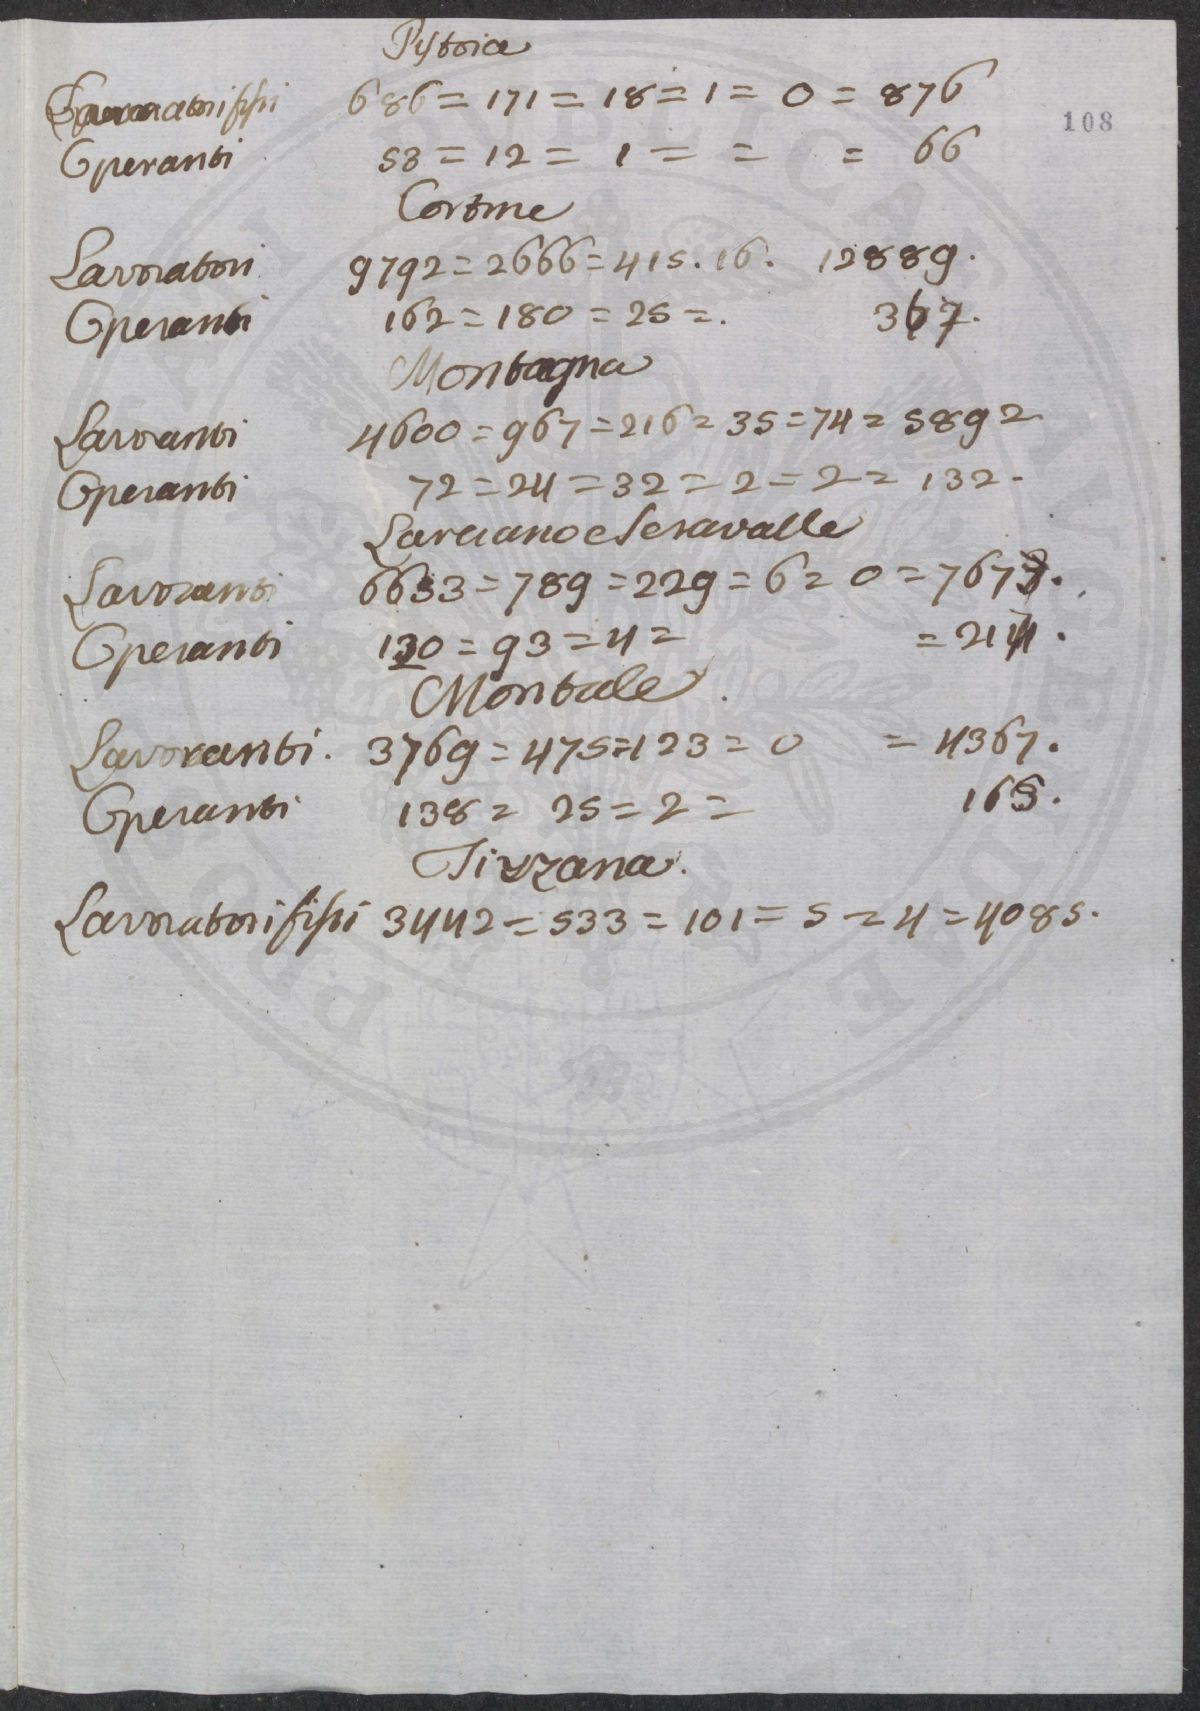 Pistoia
Lavoratori fissi 686 = 171 = 18 = 1 = 0 = 876
108
Operanti 53 = 12 = 1 = = = 66
Cortine
Lavoratori 9792 = 2666 = 415. 16. 12889.
Operanti 162 = 180 = 25 =. 367.
Montagna
Lavoranti 4600 = 967 = 216 = 35 = 74 = 5892
Operanti 72 = 24 = 32 = 2 = 2 = 132.
Larciano e Seravalle
Lavoranti 6653 = 789 = 229 = 6 = 0 = 7677.
Operanti 120 = 93 = 4 = = 217.
Montale.
Lavoranti. 3769 = 475 = 123 = 0 = 4367.
Operanti 138 = 25 = 2 = 165.
Tizzana.
Lavoratori fissi 3442 = 533 = 101 = 5 = 4 = 4085.